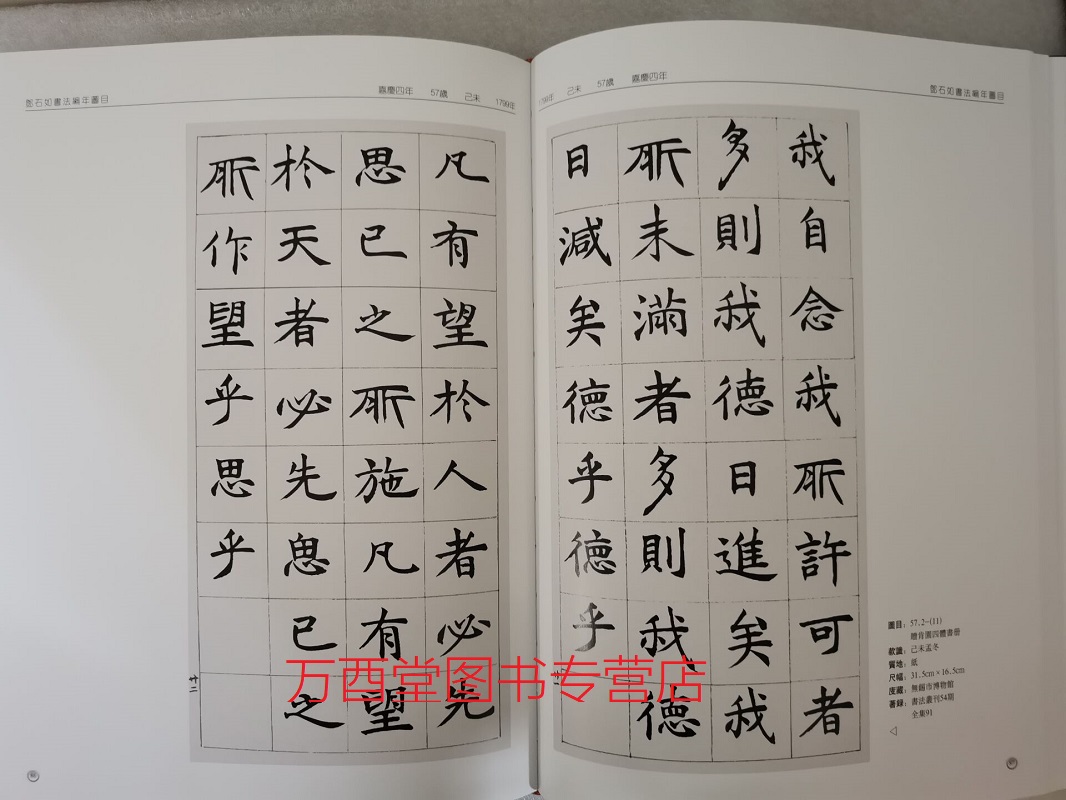 鄧石如書法編年圖目
1799年 己未 57歲 嘉慶四年
我自念我所許可者
多則我德日進矣我
所未滿者多則我德
日減矣德乎德乎
圖目：57.2-(11)
贈肯園四體書册
款識：己未孟冬
質地：紙
尺幅：31.5cm×16.5cm
庋藏：無錫市博物館
著録：書法叢刊54期
全集91
鄧石如書法編年圖目
嘉慶四年 57歲 己未 1799年
凡有望於人者必先
思已之所施凡有望
於天者必先思已之
所作望乎思乎
十二
万西堂图书专营店